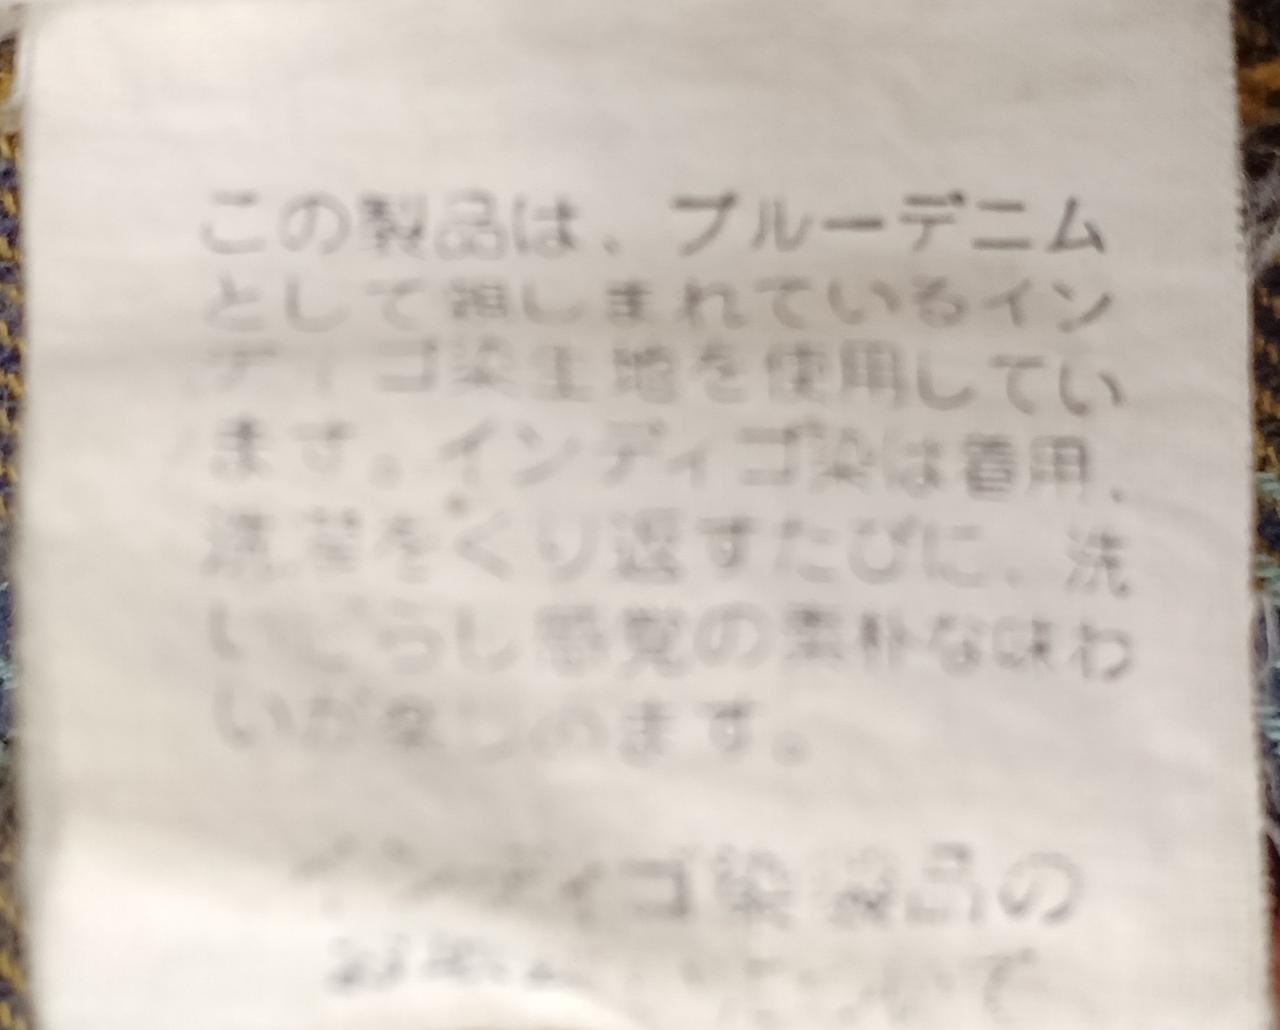 この製品は、ブルーデニム
として親しまれているイン
ディゴ染生地を使用してい
ます。インディゴ染は着用、
洗濯をくり返すたびに、洗
いざらし感覚の素朴な味わ
いが楽しめます。
インディゴ染製品の